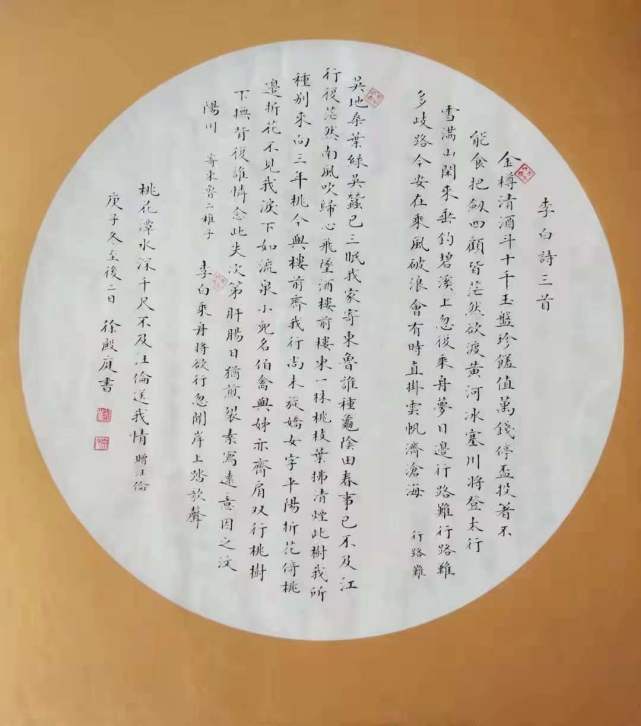 李白詩三首
金樽清酒斗十千玉盤珍饈值萬錢停盃投箸不
能食把劍四顧皆茫然欲渡黃河冰塞川將登太行
雪滿山閑來垂釣碧溪上忽復乘舟夢日邊行路難行路難
多歧路今安在乘風破浪會有時直掛雲帆濟滄海 行路難
吳地桑葉綠吳蠶已三眠我家寄東魯誰種龜陰田春事已不及江
行復茫然南風吹歸心飛墮酒樓前樓東一株桃枝葉拂清煙此樹我所
種別來向三年桃今與樓前齊我行尚未旋嬌女字平陽折花倚桃
邊折花不見我淚下如流泉小兒名伯禽與姊亦齊肩双行桃樹
下撫背復誰憐念此失次第肝腸日猶煎裂素寫遠意因之汶
陽川 寄東魯二稚子
李白乘舟將欲行忽聞岸上踏歌聲
桃花潭水深千尺不及汪倫送我情 贈汪倫
庚子冬至後二日 徐殿庭書